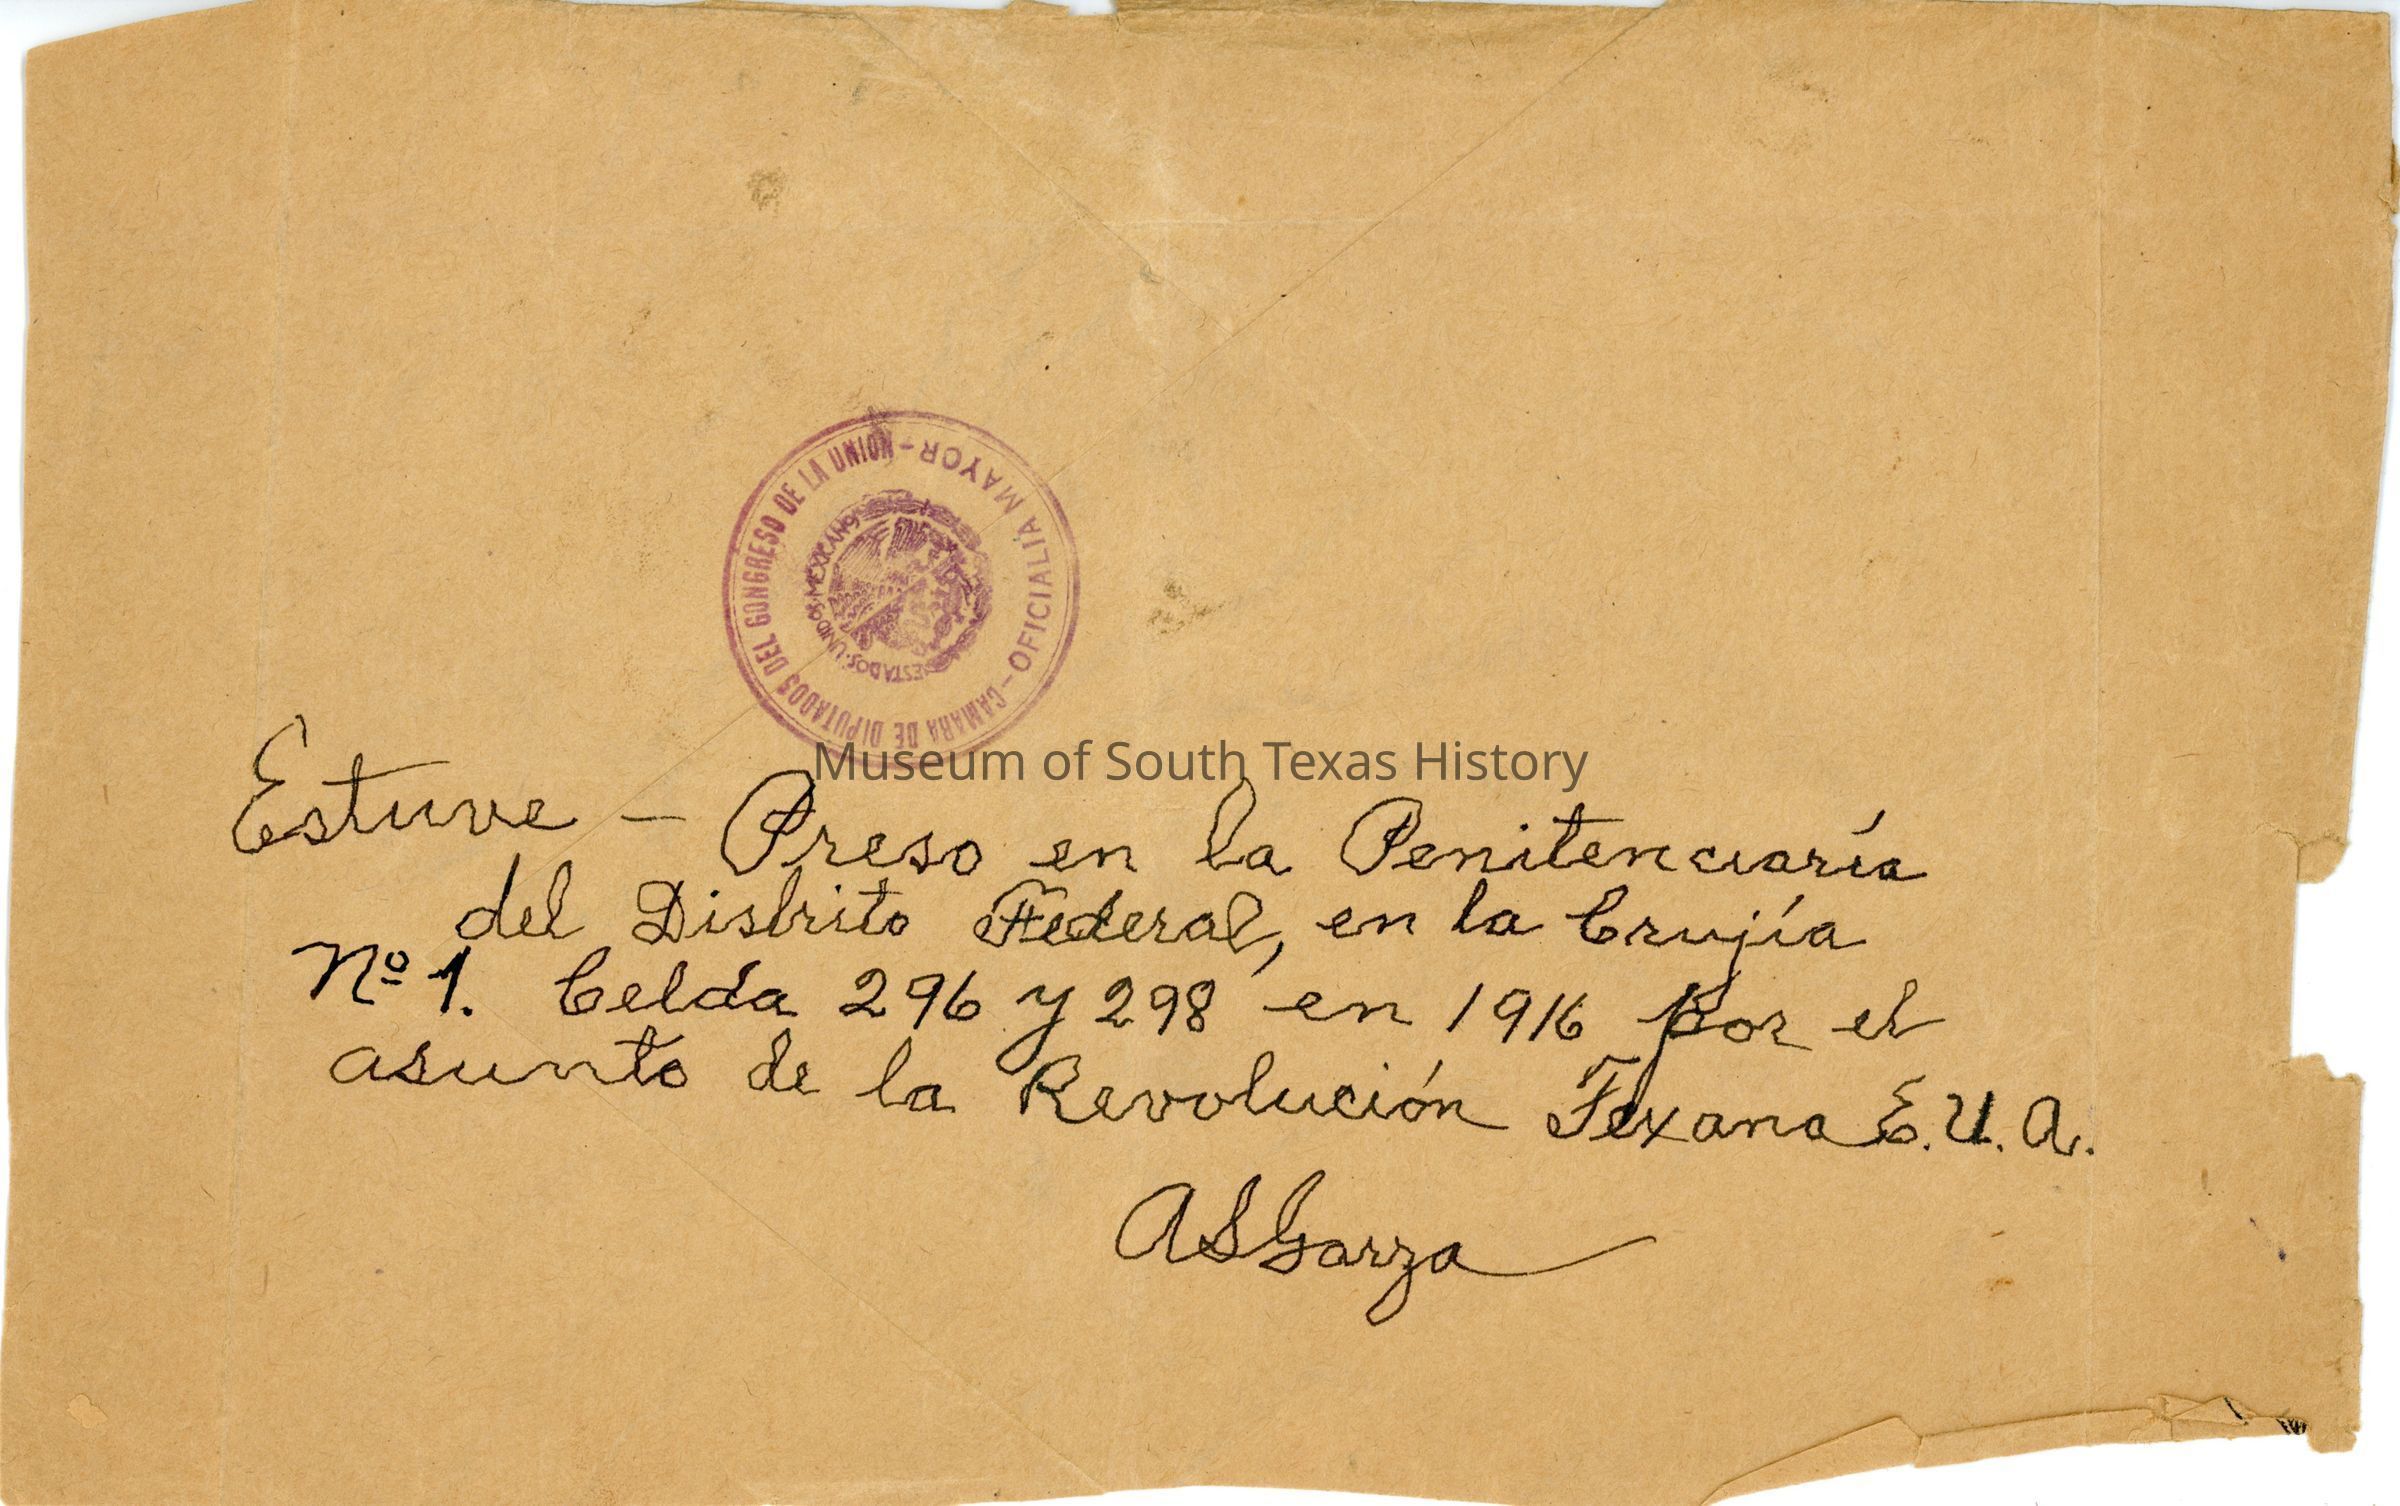 CAMARA DE DIPUTADOS DEL CONGRESO DE LA UNION - OFICIALIA MAYOR -
ESTADOS · UNIDOS · MEXICANOS
Museum of South Texas History
Estuve — Preso en la Penitenciaría
del Distrito Federal, en la Crujía
Nº 1. Celda 296 y 298 en 1916 por el
asunto de la Revolución Texana E.U.A.
ASGarza